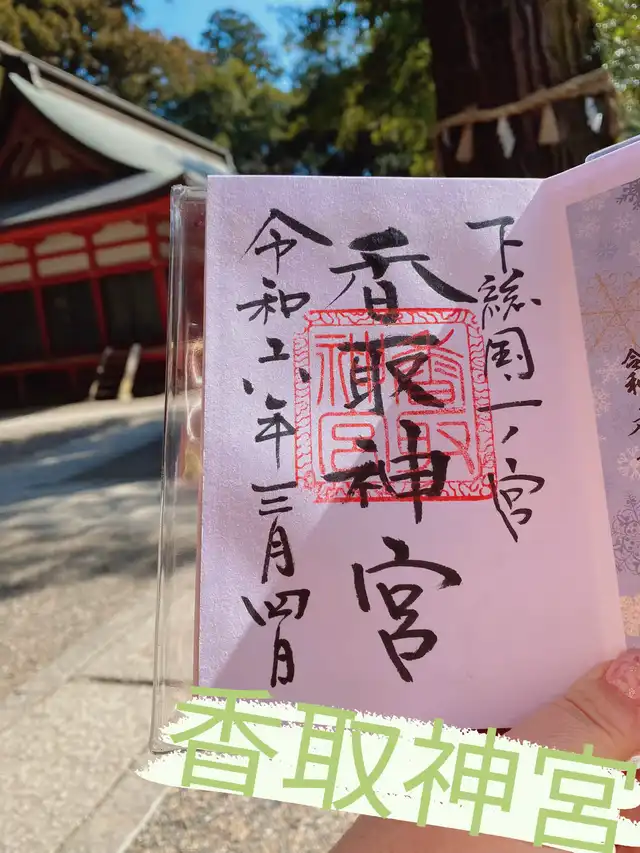 令和
下総国一ノ宮
香取神宮
香取
神宮
令和六年三月四日
香取神宮